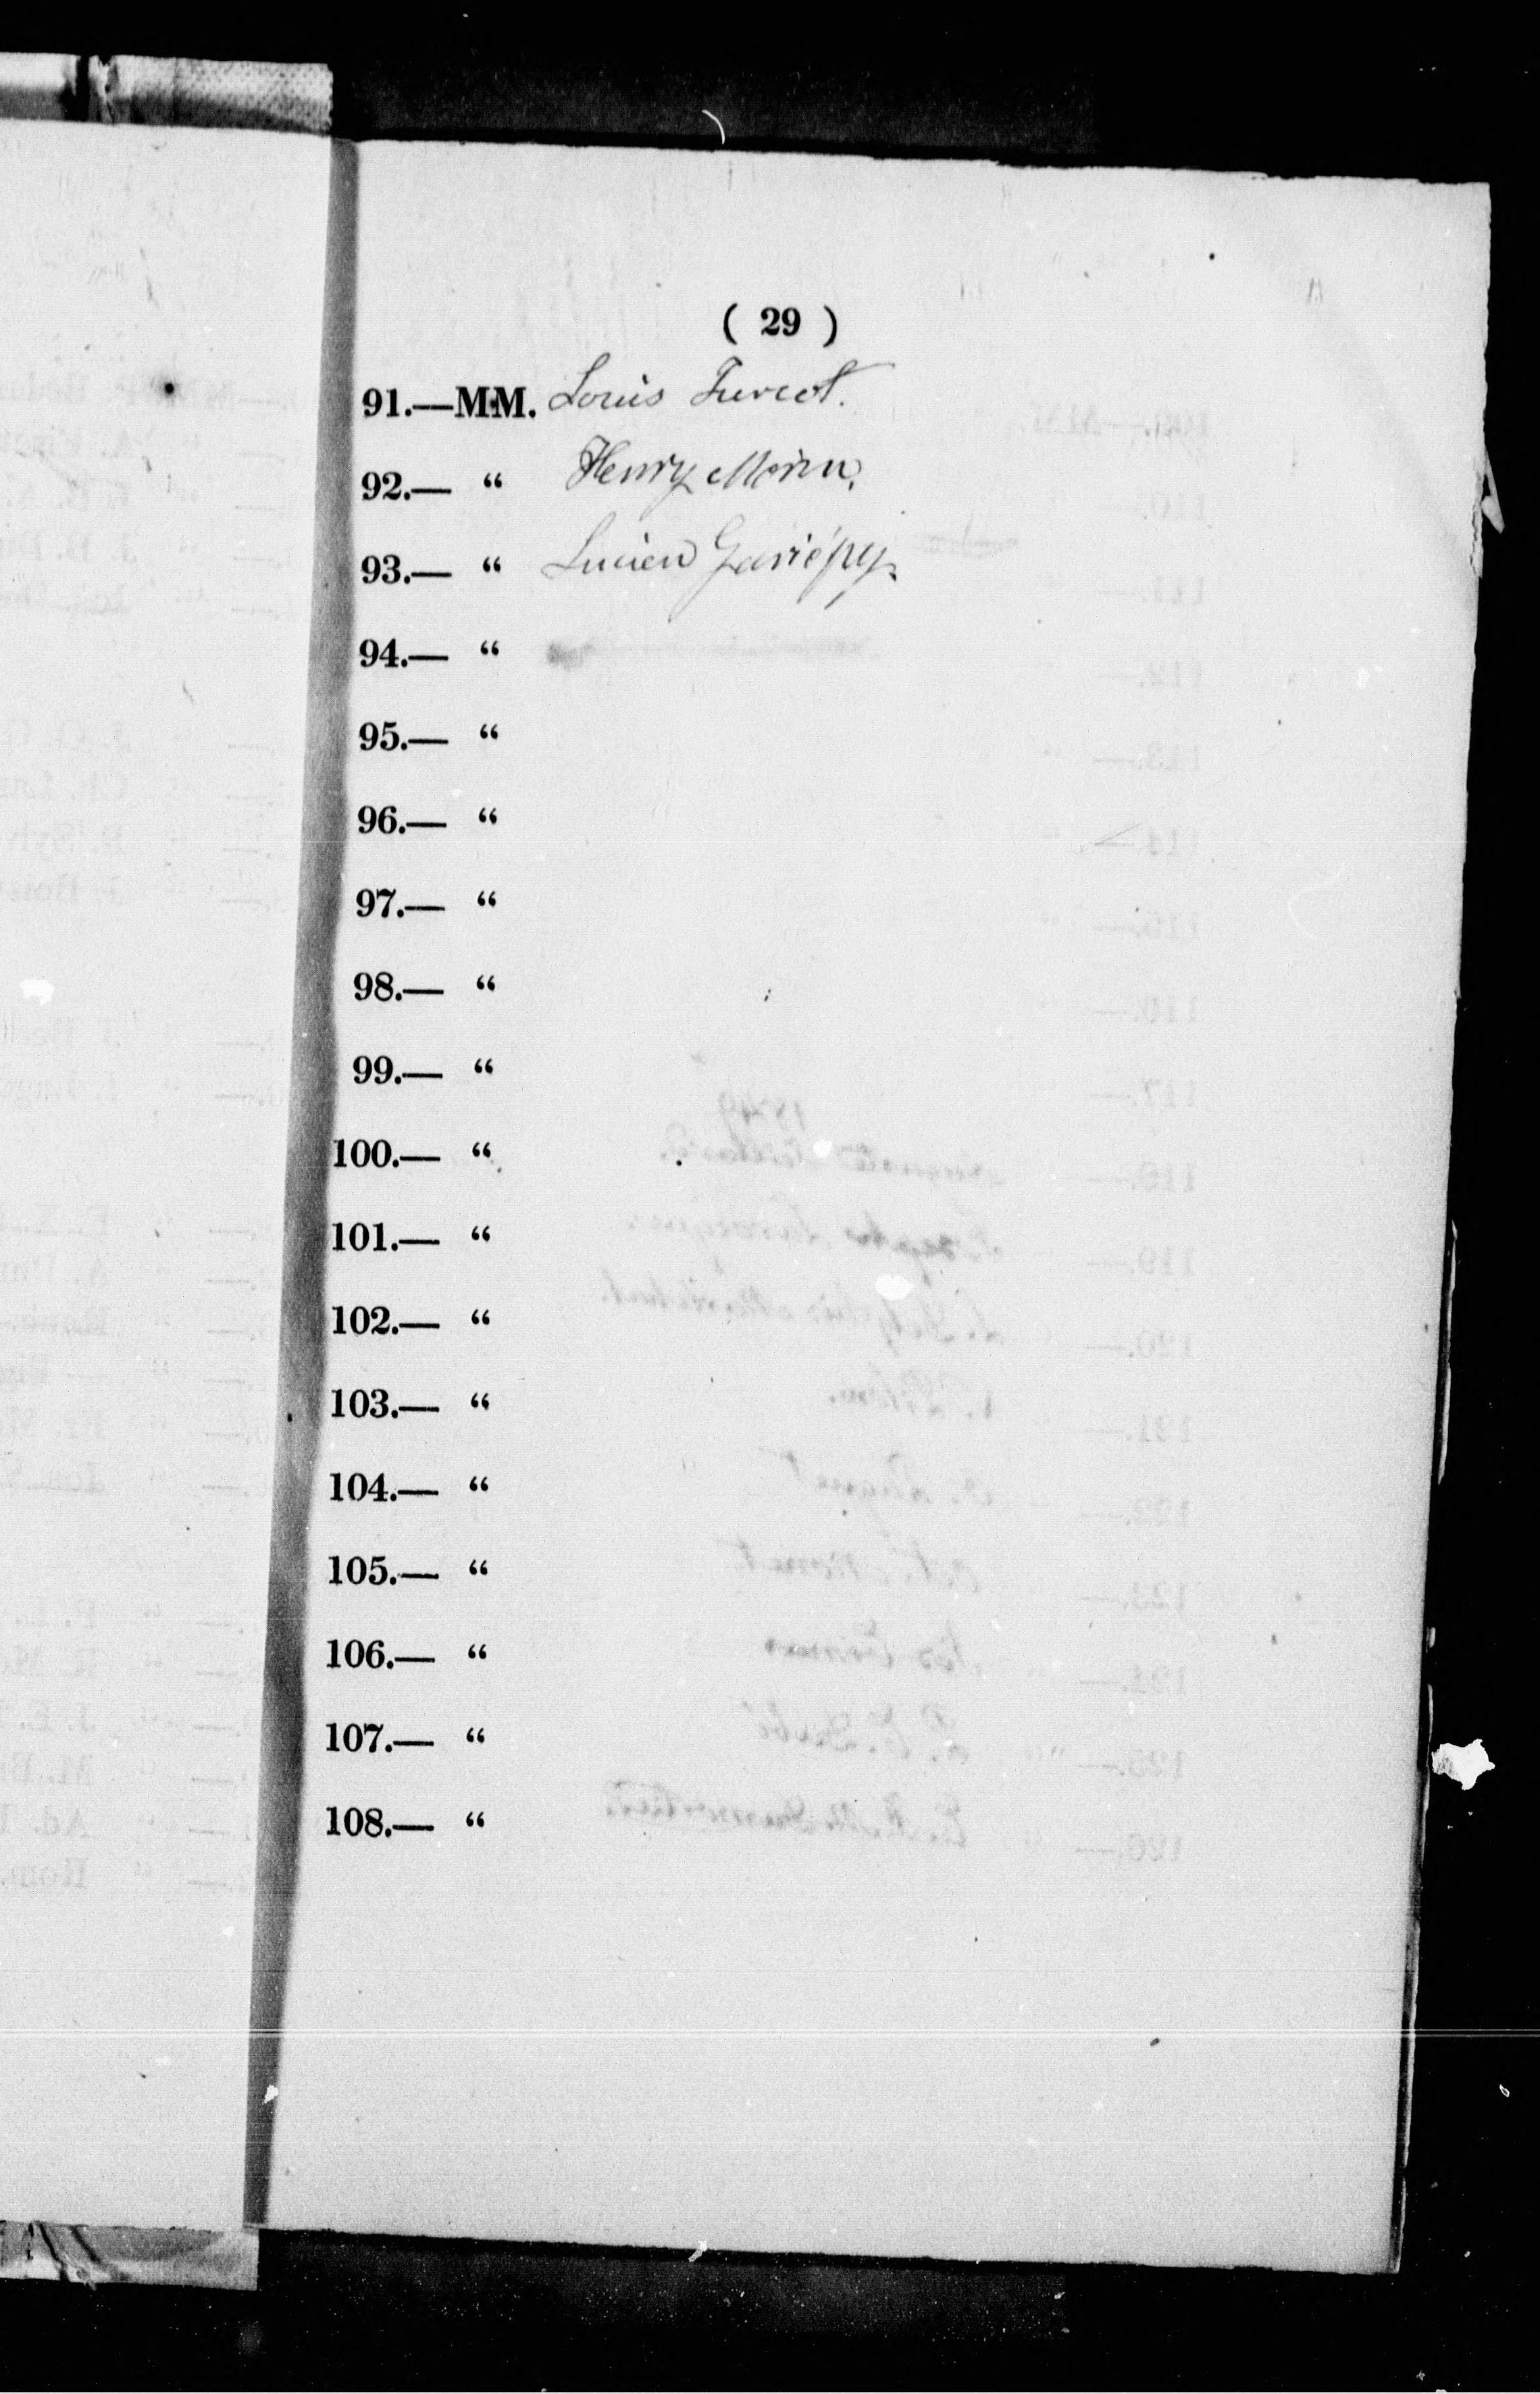 ( 29 )
91.—MM. Louis Turcot.
92.— “ Henry Morin.
93.— “ Lucien Gariépy.
94.— “
95.— “
96.— “
97.— “
98.— “
99.— “
100.— “
101.— “
102.— “
103.— “
104.— “
105.— “
106.— “
107.— “
108.— “